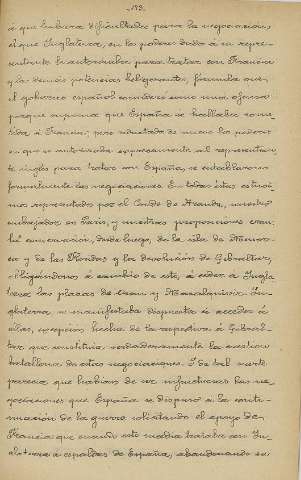 - 183 -
á que hubiera dificultades para la negociación,
si que Inglaterra, en los poderes dados á su repre-
sentante le autorizaba para tratar con Francia
y las demás potencias beligerantes, fórmula que
el gobierno español consideró como una ofensa
porque suponía que España se hallaba some-
tida á Francia; pero redactada de nuevo la poderes
en que se autorizaba expresamente al representan-
te inglés para tratar con España, se entablaron
formalmente las negociaciones. En todas éstas estuvi-
mos representados por el Conde de Aranda, nuestro
embajador en París, y nuestras proposiciones eran
la conservación, desde luego, de la isla de Menor-
ca y de las Floridas y la devolución de Gibraltar,
obligándonos á cambio de éste, á ceder á Ingla-
terra las plazas de Orán y Mazalquivir. In-
glaterra se manifestaba dispuesta á acceder á
ellas, excepción hecha de la respectiva á Gibral-
tar que constituía verdaderamente la cuestión
batallona de estas negociaciones. Y de tal suerte
parecía que habían de ser infructuosas las ne-
gociaciones que España se dispuso á la conti-
nuación de la guerra solicitando el apoyo de
Francia que cuando esto media trataba con In-
glaterra á espaldas de España, abandonando su